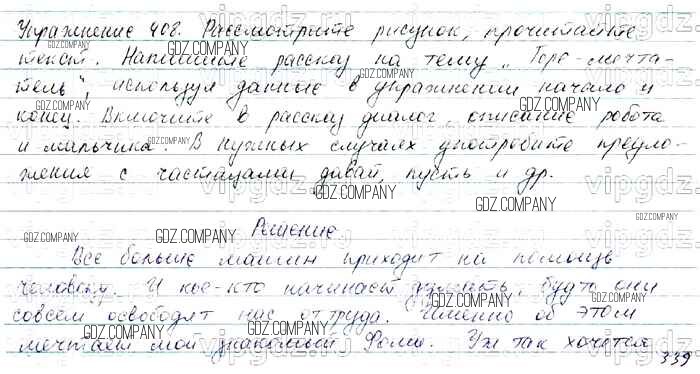 Упражнение 408. Рассмотрите рисунок, прочитайте
текст. Напишите рассказ на тему „Горе-мечта-
тель", используя данные в упражнении начало и
конец. Включите в рассказ диалог, описание робота
и мальчика. В нужных случаях употребите предло-
жения с частицами давай, пусть и др.
Решение.
Все больше машин приходит на помощь
человеку. И кое-кто начинает думать, будто они
совсем освободят нас от труда. Именно об этом
мечтает мой знакомый Рома. Уж так хочется
339
GDZ.COMPANY
vipgdz.ru